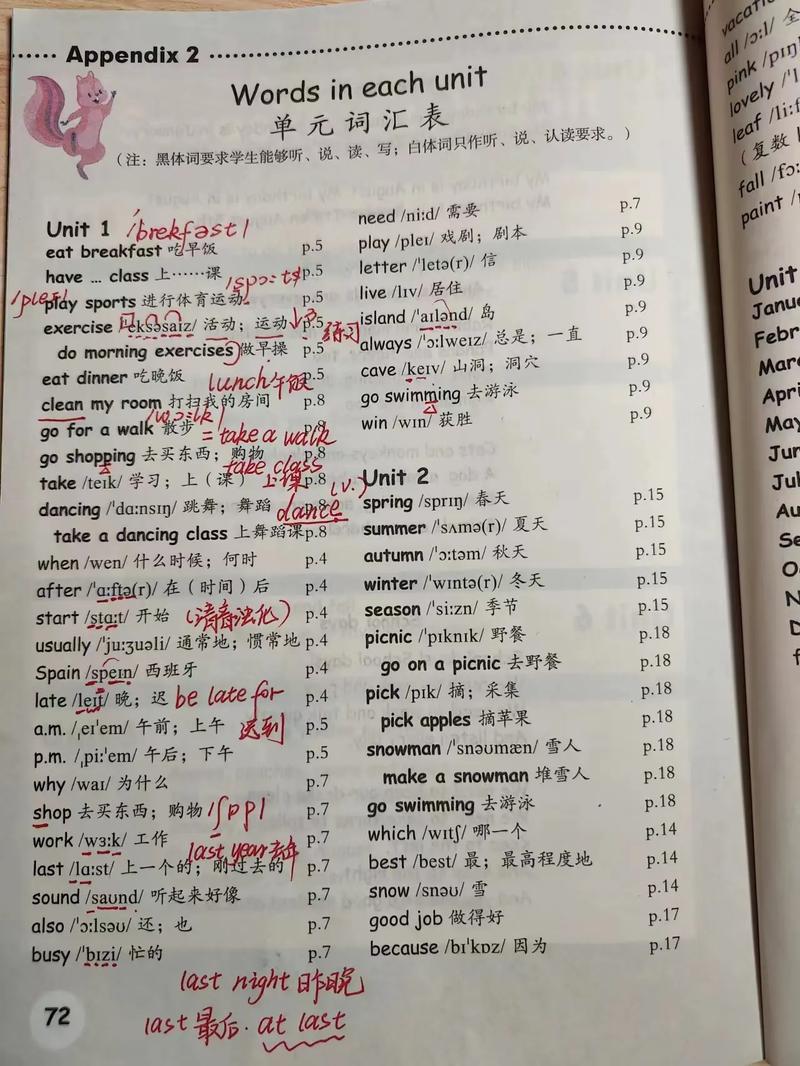 Appendix 2
Words in each unit
单元词汇表
（注：黑体词要求学生能够听、说、读、写；白体词只作听、说、认读要求。）
Unit 1 /brekfast/
eat breakfast 吃早饭 p.5
have … class 上……课 /spɔ:ts/ p.5
/pleɪ/
play sports 进行体育运动 p.5
exercise /'eksəsaɪz/ 活动；运动 p.5 练习
do morning exercises 做早操 p.5
eat dinner 吃晚饭 p.5
lunch 午饭
clean my room 打扫我的房间 p.8
/wɔ:lk/
go for a walk 散步 p.8
= take a walk
go shopping 去买东西；购物 p.8
take class
take /teɪk/ 学习；上（课） 上课 p.8
(v.)
dancing /'dɑ:nsɪŋ/ 跳舞；舞蹈 dance p.8
take a dancing class 上舞蹈课 p.8
when /wen/ 什么时候；何时 p.4
after /'ɑ:ftə(r)/ 在（时间）后 p.4
start /stɑ:t/ 开始 (清音浊化) p.4
usually /'ju:ʒuəli/ 通常地；惯常地 p.4
Spain /speɪn/ 西班牙 p.4
late /leɪt/ 晚；迟 be late for p.4
a.m. /ˌeɪ'em/ 午前；上午 迟到 p.5
p.m. /ˌpi:'em/ 午后；下午 p.5
why /waɪ/ 为什么 p.7
shop 去买东西；购物 /ʃɒp/ p.7
work /wɜ:k/ 工作 p.7
last year 去年
last /lɑ:st/ 上一个的；刚过去的 p.7
sound /saʊnd/ 听起来好像 p.7
also /'ɔ:lsəʊ/ 还；也 p.7
busy /'bɪzi/ 忙的 p.7
last night 昨晚
last 最后. at last
72
need /ni:d/ 需要 p.7
play /pleɪ/ 戏剧；剧本 p.9
letter /'letə(r)/ 信 p.9
live /lɪv/ 居住 p.9
island /'aɪlənd/ 岛 p.9
always /'ɔ:lweɪz/ 总是；一直 p.9
cave /keɪv/ 山洞；洞穴 p.9
go swimming 去游泳 p.9
win /wɪn/ 获胜 p.9
Unit 2
spring /sprɪŋ/ 春天 p.15
summer /'sʌmə(r)/ 夏天 p.15
autumn /'ɔ:təm/ 秋天 p.15
winter /'wɪntə(r)/ 冬天 p.15
season /'si:zn/ 季节 p.15
picnic /'pɪknɪk/ 野餐 p.18
go on a picnic 去野餐 p.18
pick /pɪk/ 摘；采集 p.18
pick apples 摘苹果 p.18
snowman /'snəʊmæn/ 雪人 p.18
make a snowman 堆雪人 p.18
go swimming 去游泳 p.18
which /wɪtʃ/ 哪一个 p.14
best /best/ 最；最高程度地 p.14
snow /snəʊ/ 雪 p.14
good job 做得好 p.17
because /bɪ'kɒz/ 因为 p.17
all /ɔ:l/ 全
pink /pɪŋ
lovely /'l
leaf /li:f
（复数 l
fall /fɔ:
paint /p
Unit
Janu
Febr
Marc
April
May
Jun
Jul
Au
Se
O
N
D